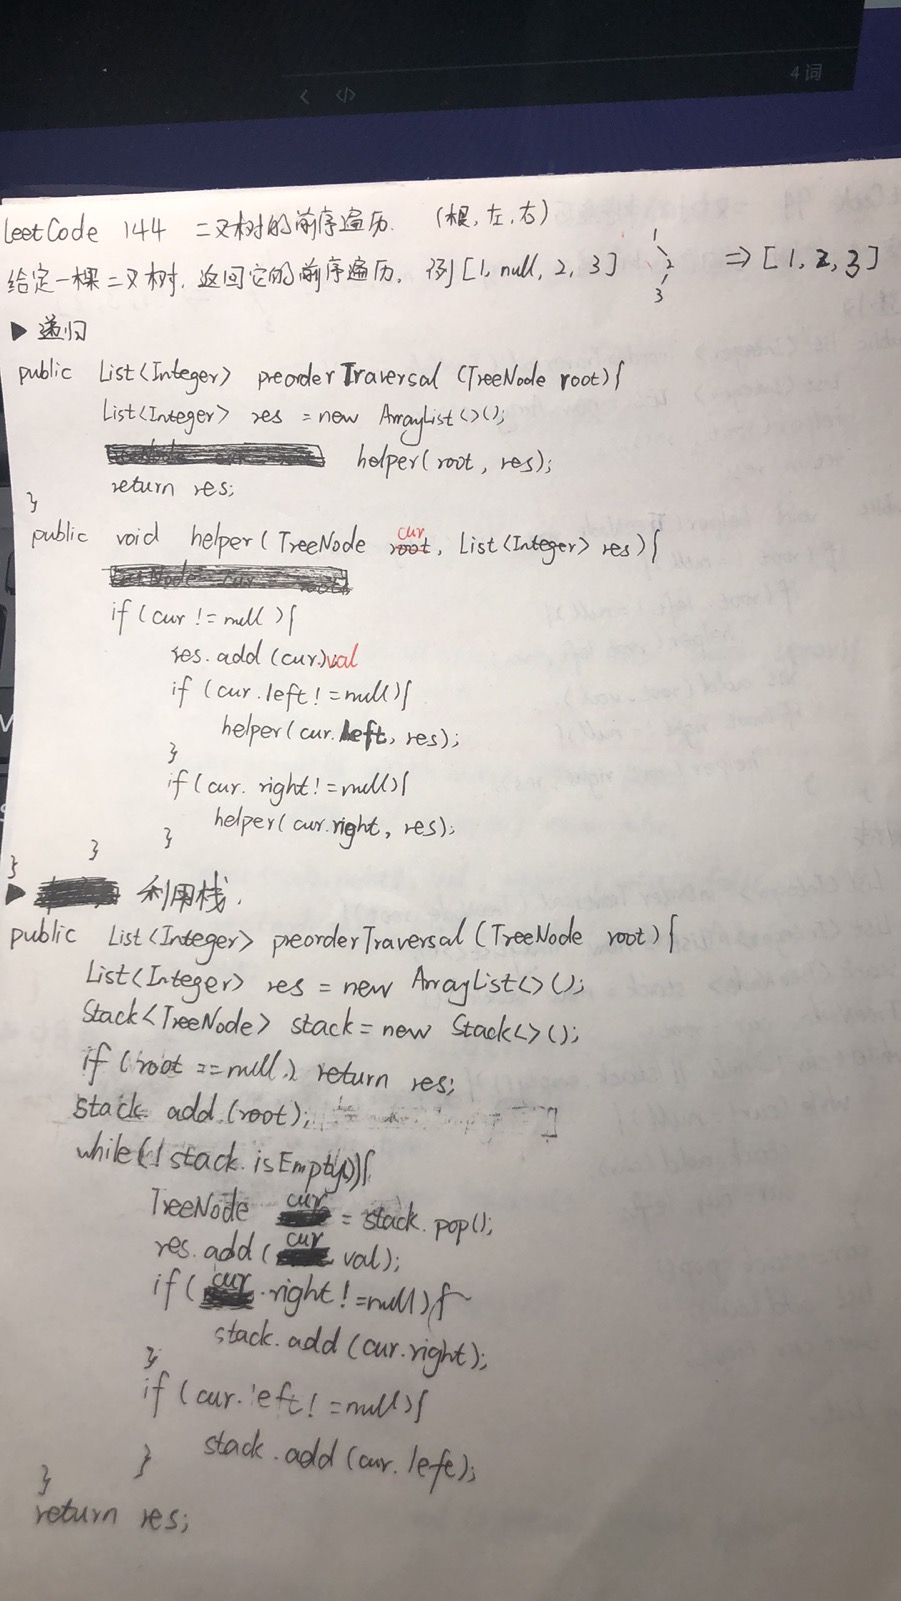 4 词
leetCode 144 二叉树的前序遍历. (根,左,右)
给定一棵二叉树, 返回它的前序遍历, 例[1, null, 2, 3] 1 2 3 => [1, 2, 3]
▶ 递归
public List<Integer> preorderTraversal (TreeNode root){
List<Integer> res = new ArrayList<>();
helper(root, res);
return res;
}
public void helper( TreeNode cur, List<Integer> res){
if (cur != null){
res. add (cur.)val
if (cur.left != null){
helper(cur.left, res);
}
if (cur. right != null){
helper( cur.right, res);
}
}
}
▶ 利用栈.
public List<Integer> preorderTraversal (TreeNode root){
List<Integer> res = new ArrayList<>();
Stack<TreeNode> stack = new Stack<>();
if (root == null) return res;
stack. add (root);
while(! stack. isEmpty()){
TreeNode cur = stack. pop();
res. add ( cur val);
if ( cur .right != null){
stack. add (cur.right);
}
if (cur. left != null){
stack. add (cur. lefe);
}
}
return res;